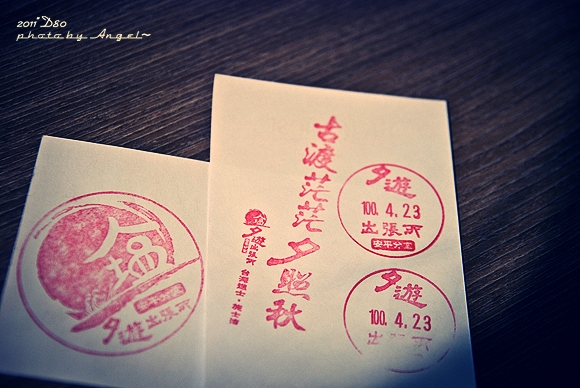 2011*D80
photo by Angel~
古渡茫茫夕照秋
夕遊
100. 4. 23
出張所
安平分室
夕遊
100. 4. 23
出張所
夕遊出張所
夕遊出張所